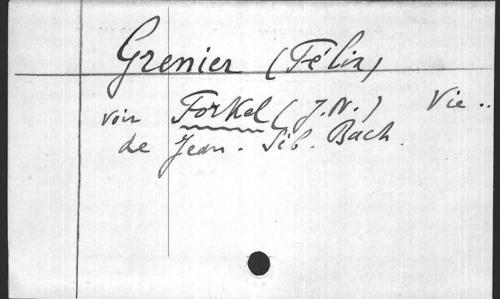 Grenier (Félix)
voir Forkel (J.N.) Vie ..
de Jean. Séb. Bach.